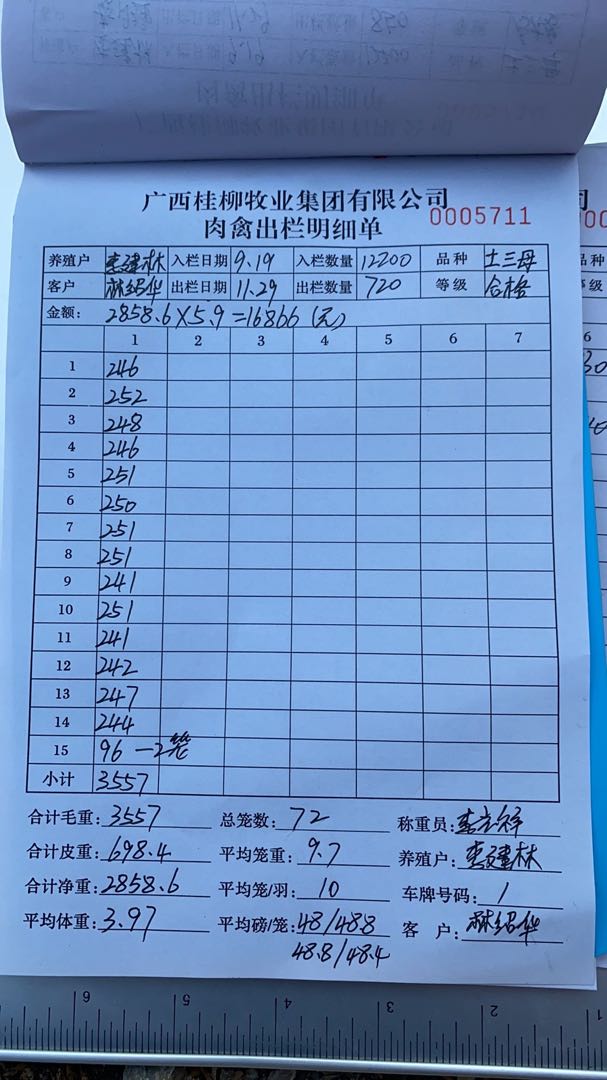 广西桂柳牧业集团有限公司
肉禽出栏明细单 0005711
养殖户 李建林 入栏日期 9.19 入栏数量 12200 品种 土三母
客户 林绍华 出栏日期 11.29 出栏数量 720 等级 合格
金额: 2858.6×5.9=16866(元)
1 2 3 4 5 6 7
1 246
2 252
3 248
4 246
5 251
6 250
7 251
8 251
9 241
10 251
11 241
12 242
13 247
14 244
15 96 —2笼
小计 3557
合计毛重: 3557 总笼数: 72 称重员:
合计皮重: 698.4 平均笼重: 9.7 养殖户: 李建林
合计净重: 2858.6 平均笼/羽: 10 车牌号码: /
平均体重: 3.97 平均磅/笼: 48/48.8 客户: 林绍华
48.8/48.4